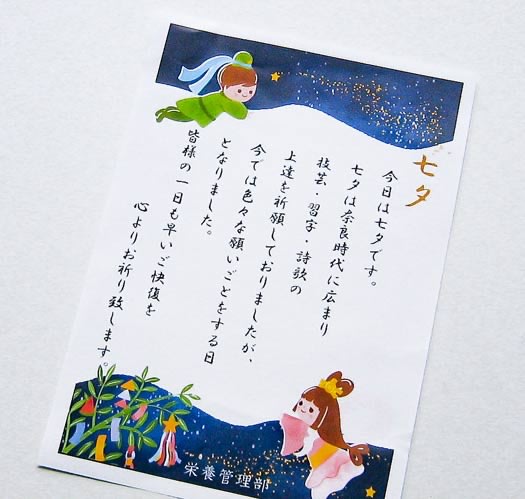 七夕
今日は七夕です。
七夕は奈良時代に広まり
技芸・習字・詩歌の
上達を祈願しておりましたが、
今では色々な願いごとをする日
となりました。
皆様の一日も早いご快復を
心よりお祈り致します。
栄養管理部